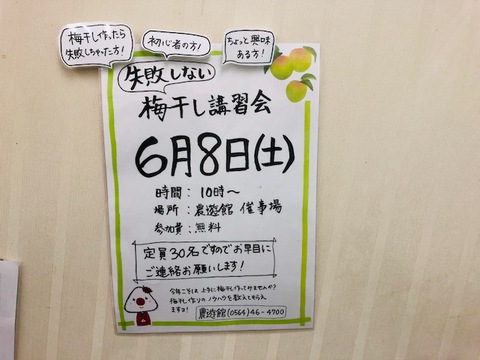 梅干し作ったら
失敗しちゃった方!
初心者の方!
ちょっと興味
ある方!
失敗しない
梅干し講習会
6月8日(土)
時間:10時~
場所:農遊館 催事場
参加費:無料
定員30名ですのでお早目に
ご連絡お願いします!
今年こそは上手に梅干し作ってみませんか?
梅干し作りのノウハウを教えてもらえ
ますヨ!
農遊館(0564)46-4700